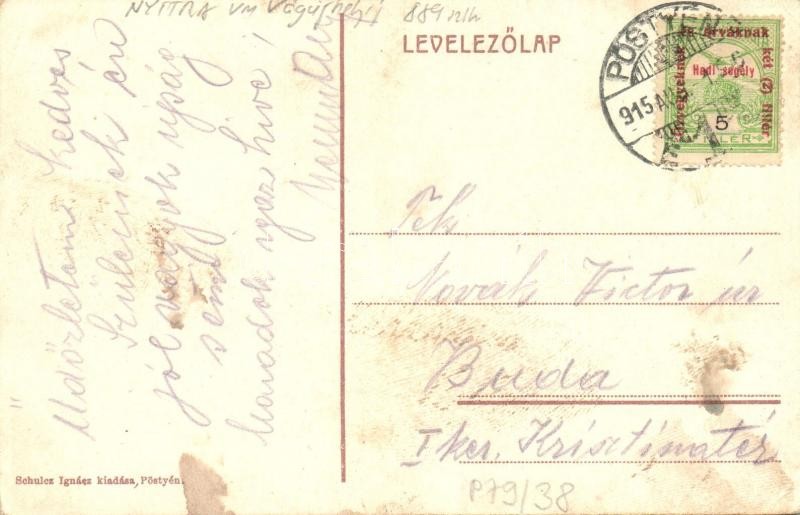 NYITRA vm Vágújhely
889
LEVELEZŐLAP
PÖSTYÉN
915
és árváknak
özvegyeknek
két (2) fillér
Hadi segély
5
Üdvözletemet kedves
Szüleinek én
jól vagyok ujság
semmi
Maradok igaz hive!
Tek
Novák Victor úr
Buda
I ker. Krisztinatér
Schulcz Ignácz kiadása, Pöstyén.
P79/38